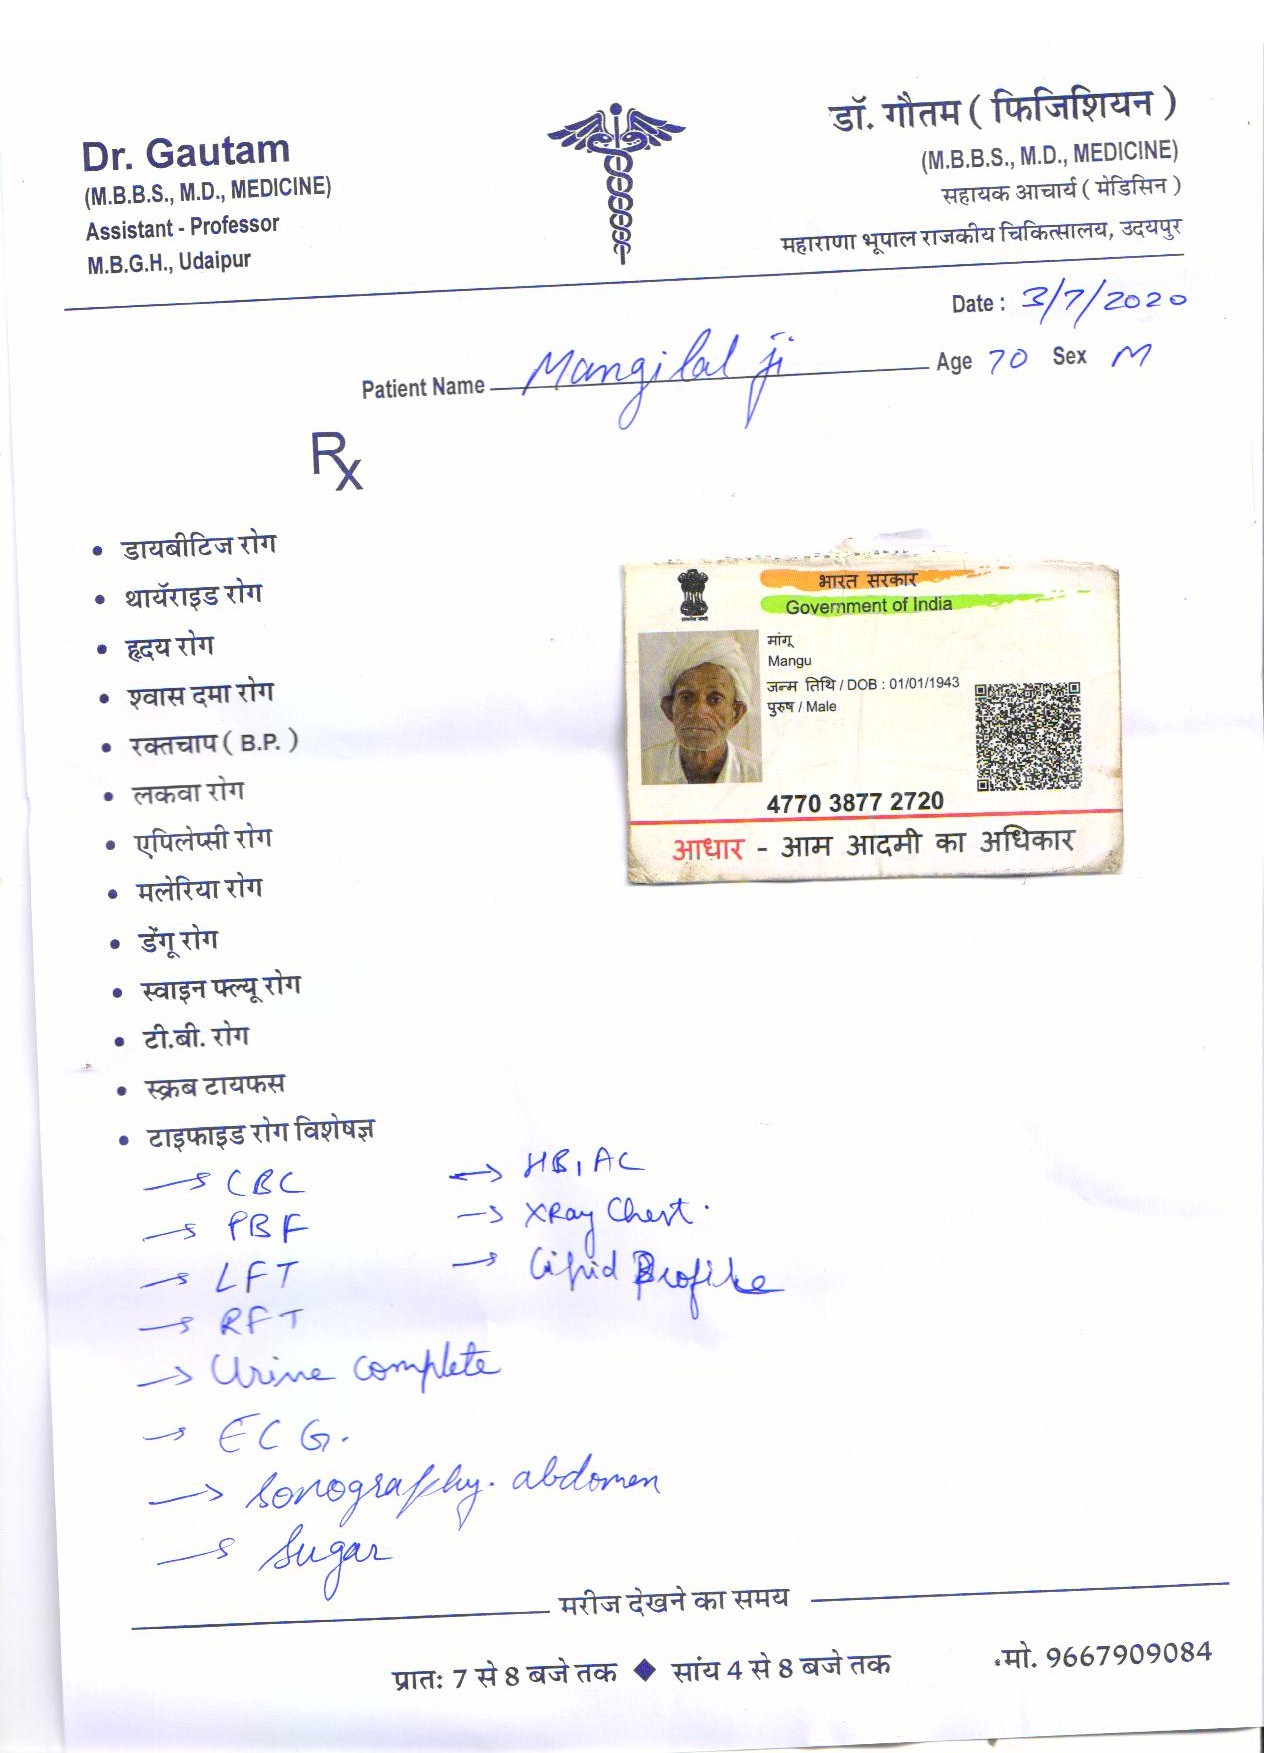 Dr. Gautam
(M.B.B.S., M.D., MEDICINE)
Assistant - Professor
M.B.G.H., Udaipur
डॉ. गौतम ( फिजिशियन )
(M.B.B.S., M.D., MEDICINE)
सहायक आचार्य ( मेडिसिन )
महाराणा भूपाल राजकीय चिकित्सालय, उदयपुर
Date : 3/7/2020
Patient Name Mangilal ji Age 70 Sex M
Rx
• डायबीटिज रोग
• थायॅराइड रोग
• हृदय रोग
• श्वास दमा रोग
• रक्तचाप ( B.P. )
• लकवा रोग
• एपिलेप्सी रोग
• मलेरिया रोग
• डेंगू रोग
• स्वाइन फ्ल्यू रोग
• टी.बी. रोग
• स्क्रब टायफस
• टाइफाइड रोग विशेषज्ञ
भारत सरकार
Government of India
मांगू
Mangu
जन्म तिथि / DOB : 01/01/1943
पुरुष / Male
4770 3877 2720
आधार - आम आदमी का अधिकार
→ CBC
→ PBF
→ LFT
→ RFT
→ Urine complete
→ ECG.
→ Sonography. abdomen
→ Sugar
→ HB1AC
→ XRay Chest.
→ Lipid Profile
मरीज देखने का समय
प्रातः 7 से 8 बजे तक ◆ सांय 4 से 8 बजे तक
मो. 9667909084